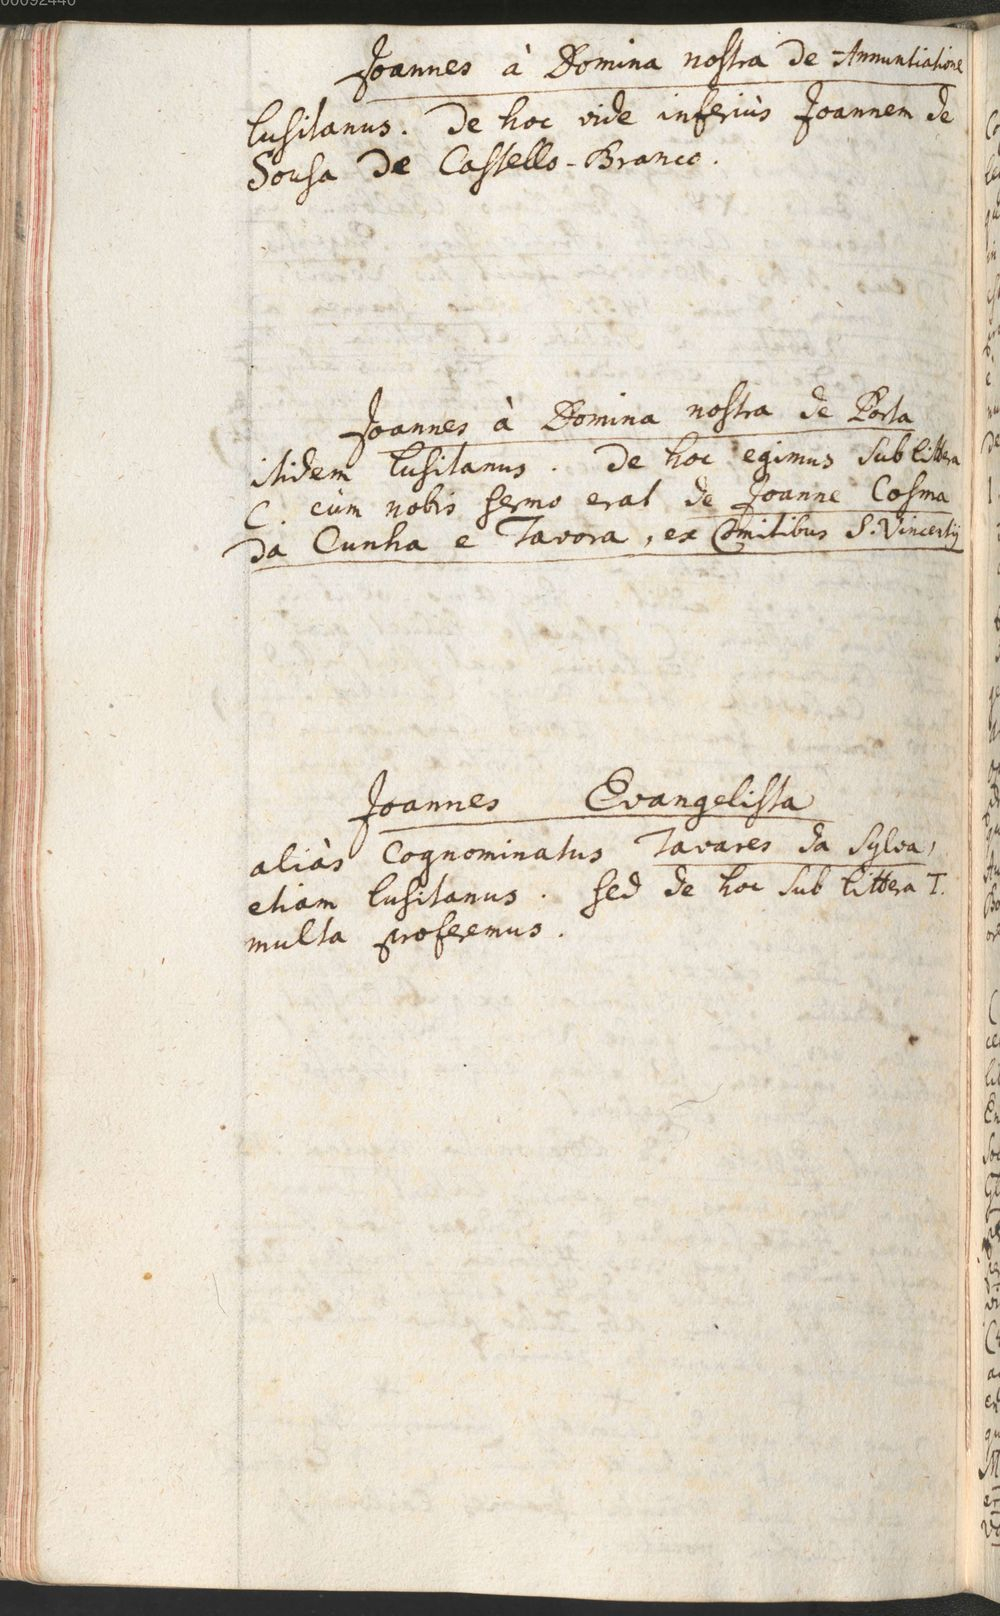 00092440
Joannes à Domina nostra de Annuntiatione
Lusitanus. De hoc vide inferiùs Joannem de
Sousa de Castello-Branco.
Joannes à Domina nostra de Porta
itidem Lusitanus. De hoc egimus sub littera
C. cùm nobis sermo erat de Joanne Cosma
da Cunha e Tavora, ex Comitibus S. Vincentij
Joannes Evangelista
aliàs Cognominatus Tavares da Sylva,
etiam Lusitanus. Sed de hoc sub littera T.
multa proferemus.